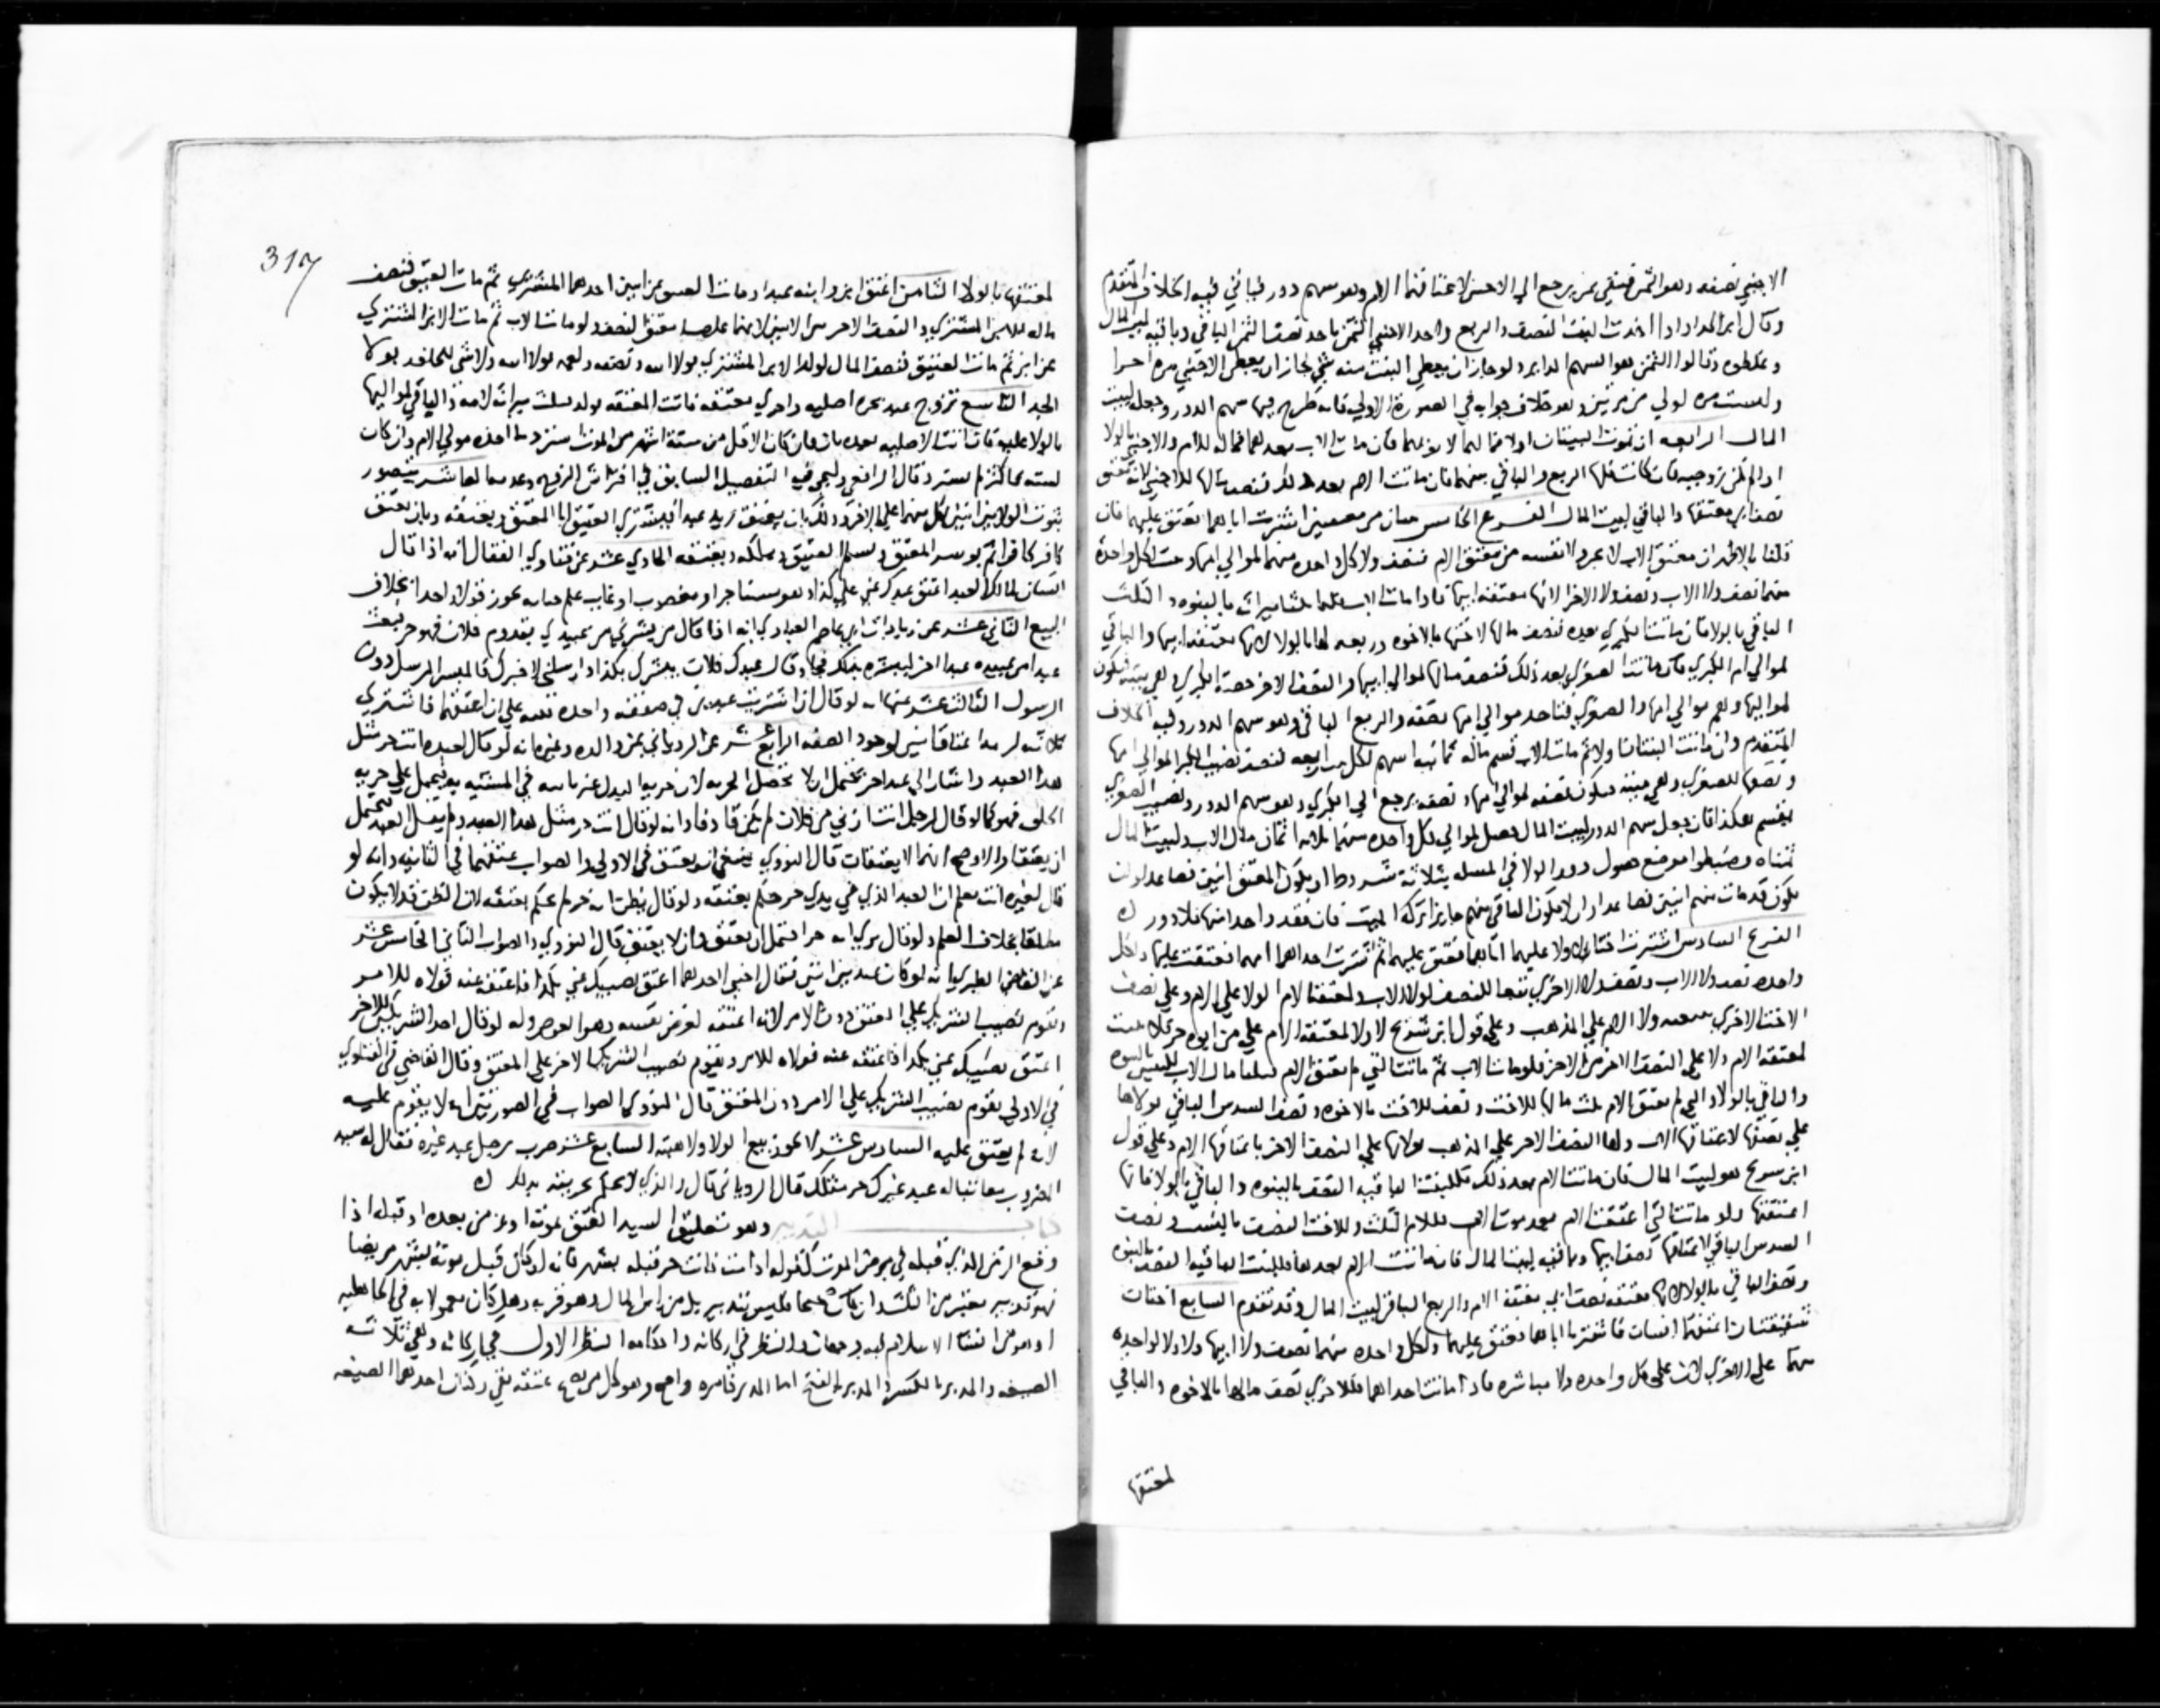 الاجنبي نصفه وهو الثمن فيبقى ثمن يرجع الى لاعتاقها الام وهو سهم دور فيأتي فيه الخلاف المتقدم
وقال ابن الحداد اذا اخذت البنت النصف والربع واخذ الاجنبي الثمن ياخذ نصف الثمن الباقي وباقيه لبيت المال
وغلطوه وقالوا الثمن هو السهم الداير ولو جاز ان يعطى البنت منه شي لجاز ان يعطى الاجنبي مره اخرى
من مرتين وهو خلاف جوابه في الصورة الاولى فانه طرح فيها سهم الدور وجعله لبيت
المال الرابعه ان تموت البنتان اولا فمالهما لابويهما فان مات الاب بعدهما فماله للام والاجنبي بالولا
او لم تكن زوجيه كانت فلها الربع والباقي بينهما فان ماتت الام بعد ذلك فنصف مالها للاجنبي لانه معتق
نصف ابي معتقها والباقي لبيت المال الفرع الخامس اشترتا اباهما فعتق عليهما فان
قلنا بالاظهر ان معتق الاب من معتق الام فنصف ولا كل واحده منهما لموالي امها وحيث لكل واحدة
منهما نصف ولا الاب ونصف ولا الاخرى لانها معتقه ابيها فاذا مات الاب فلهما ثلثا ميراثه بالبنوه والثلث
الباقي بالولا فان ماتت الكبرى بعده فنصف مالها لاختها بالاخوه وربعه لها بالولا لانها معتقه ابيها والباقي
لموالي ام الكبرى فان ماتت الصغرى بعد ذلك فنصف مالها لموالي ابيها والنصف الاخر حصة الكبرى وهي ميته فيكون
لمواليها وهم موالي امها والصغرى فياخذ موالي امها نصفه والربع الباقي وهو سهم الدور وفيه الخلاف
المتقدم وان ماتت البنتان اولا ثم مات الاب قسم ماله ثمانيه اسهم لكل بنت اربعه فنصف نصيب الكبرى لموالي امها
ونصفها للصغرى وهي ميته فيكون نصفه لموالي امها ونصفه يرجع الى الكبرى وهو سهم الدور ونصيب الصغرى
يقسم هكذا فان جعل سهم الدور لبيت المال حصل لموالي كل واحده منهما ثلاثة اثمان مال الاب ولبيت المال
ثمناه وضبطوا موضع حصول دور الولا في المسله بثلاثة شروط ان يكون المعتق اثنين فصاعدا وان
يكون قد مات منهم اثنين فصاعدا وان لا يكون الباقي منهم حايز تركة الميت فان فقد واحد منها فلا دور
الفرع السادس اشترت اختان لا ولا عليهما اباهما فعتق عليهما ثم اشترت احداهما امهما فعتقت عليها ولكل
واحده نصف ولا الاب ونصف ولا الاخرى تبعا للنصف لولا الاب ولمعتقة الام الولا على الام وعلى نصف
الاخت الاخرى ولا الام على المذهب وعلى قول ابن شريح لا ولا لمعتقة الام على من ابوه حر
لمعتقة الام ولا على النصف الاخر من الاخرى فلو مات الاب ثم ماتت التي لم تعتق الام فلهما مال الاب
والباقي بالولا والتي لم تعتق للام ثلث مالها وللاخت ونصف للاخت بالاخوه ونصف السدس الباقي بولاها
على نصفها لاعتاقها الاب ولها النصف الاخر على المذهب بولاها على النصف الاخر باعتاقها الام وعلى قول
ابن سريج هو لبيت المال فان ماتت الام بعد ذلك فللبنت الباقيه النصف بالبنوه والباقي بالولا فانها
اعتقتها ولو ماتت التي اعتقت الام بعد موت الاب فللام الثلث وللاخت النصف بالنسب ونصف
السدس الباقي لاعتاقها نصف ابيها وباقيه لبيت المال فان ماتت الام بعدها فللبنت الباقيه النصف بالبنوه
ونصف الباقي بالولا لانها معتقه نصف ابي معتقة الام والربع الباقي لبيت المال وقد تقدم السابع اختان
شقيقتان اعتقهما انسان فاشتريا اباهما فعتق عليهما ولكل واحده منهما نصف ولا ابيها ولا ولا لواحده
منهما على الاخرى لان على كل واحده ولا مباشره فاذا ماتت احداهما فللاخرى نصف مالها بالاخوه والباقي
لمعتقها
317
لمعتقها بالولا الثامن اعتق ابن وابنه عبدا ومات العبد عن ابنين احدهما المشتري ثم مات العتيق فنصف
ماله للابن المشتري والنصف الاخر بين الابنين لانهما عصبه معتق النصف ولو مات الاب ثم مات الابن المشتري
عن ابن ثم مات العتيق فنصف المال لولد الابن المشتري بولا ابيه ونصفه ولعمه بولا ابيه ولا شي
الجد التاسع تزوج عبد بحره اصليه واخرى معتقه فاتت المعتقه بولد فمات ميراثه لامه والباقي لمواليها
بالولا عليه فان اتت الاصليه بعده بابن فان كان لاقل من ستة اشهر من الموت استرد ما اخذه مولى الام وان كان
لسته فاكثر لم يسترد قال الرافعي وليجي فيه التفصيل السابق في افتراش الزوجه وعدمه العاشر يتصور
ثبوت الولا بين اثنين لكل منهما على الاخر وذلك بان يعتق زيد عبدا فيشتري العتيق ابا المعتق ويعتقه وبان يعتق
كافر كافرا ثم يوسر المعتق ويسلم العتيق ويملكه ويعتقه الحادي عشر عن فتاوي القفال انه اذا قال
انسان لمالك العبد اعتق عبدك عني على كذا وهو مستاجر او مغصوب او غايب علم حياته يجوز قولا واحدا بخلاف
البيع الثاني عشر عن زيادات ابي عاصم العبادي انه اذا قال من يشرني من عبيدي بقدوم فلان فهو حر فبعث
عبدا من عبيده عبدا اخر ليبشره بذلك فجا وقال عبدك فلان يبشرك بكذا وارسلني لاخبرك فالمبشر المرسل دون
الرسول الثالث عشر عنها انه لو قال ان اشتريت عبدين في صفقه واحده فلله علي ان اعتقهما فاشترى
ثلاثه لزمه اعتاق اثنين لوجود الصفه الرابع عشر عن الروياني عن والده وغيره انه لو قال لعبده انت حر مثل
هذا العبد واشار الى عبد اخر يحتمل ان لا تحصل الحريه لان حريه البدل غير ثابته في المشبه به فيحمل على حريه
الخلق فهو كما لو قال لرجل انت ازنى من فلان لم يكن قاذفا وانه لو قال انت حر مثل هذا العبد ولم يقل العبد فيحتمل
ان يعتقا والاوضح انهما لا يعتقان قال النووي ينبغي انه يعتق في الاولى والصواب عتقهما في الثانيه وانه لو
قال لغيره انت تعلم ان العبد الذي في يدي حر حكم بعتقه ولو قال تظن انه حر لم يحكم بعتقه لان الظن قد لا يكون
مطلقا بخلاف العلم ولو قال ترى انه حر احتمل ان يعتق وان لا يعتق قال النووي والصواب الثاني الخامس عشر
عن القاضي الطبري انه لو كان عبد بين اثنين فقال اجنبي احدهما اعتق نصيبك عني بكذا فاعتقه عنه فولاه للامر
ويقوم نصيب الشريك على المعتق دون الامر لانه اعتقه لغرض نفسه وهو العوض وانه لو قال احد الشريكين للاخر
اعتق نصيبك عني بكذا فاعتقه عنه فولاه للامر ويقوم نصيب الشريك الاخر على المعتق وقال القاضي في الفتاوي
في الاولى يقوم نصيب الشريك على الامر دون المعتق قال النووي الصواب في الصورتين انه لا يقوم عليه
لانه لم يعتق عليه السادس عشر لا يجوز بيع الولا ولا هبته السابع عشر ضرب رجل عبد غيره فقال له سيد
المضروب معاتبا له عبد غيرك حر مثلك قال الروياني قال والذي لا يحكم بحريته بذلك
كتاب التدبير وهو تعليق السيد العتق بموته او عن من بعده او قبله اذا
وقع الزمن الذي قبله في مرض الموت كقوله اذا مت فانت حر قبله بشهر فانه لو كان قبل موته بشهر مريضا
فهو تدبير معتبر من الثلث وان كان صحيحا فليس بتدبير بل من راس المال وهو قربه وهل كان معمولا به في الجاهليه
او هو من انشا الاسلام فيه وجهان والنظر في اركانه واحكامه النظر الاول في اركانه وهي ثلاثه
الصيغه والمدبر بالكسر والمدبر بالفتح اما المدبر فامره واضح وهو كل من يصح عتقه بقي ركنان احدهما الصيغه